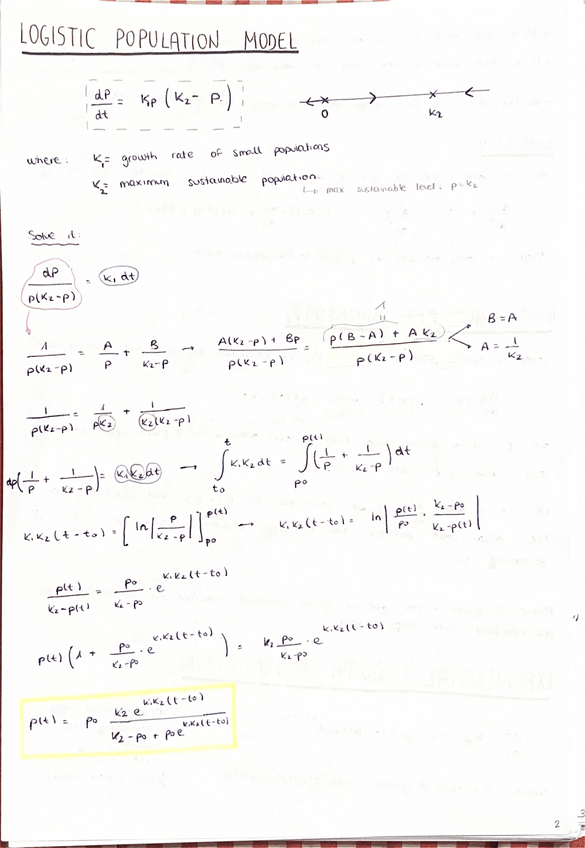 LOGISTIC POPULATION MODEL
dP/dt = K₁p (K₂ - p)
0 K₂
where: K₁= growth rate of small populations
K₂= maximum sustainable population.
↳ max sustainable level: p=K₂
Solve it:
dP/(p(K₂-p)) = K₁ dt
1/(p(K₂-p)) = A/p + B/(K₂-p) → (A(K₂-p) + Bp)/(p(K₂-p)) = (p(B-A) + AK₂)/(p(K₂-p))
1
"
B = A
A = 1/K₂
1/(p(K₂-p)) = 1/(pK₂) + 1/(K₂(K₂-p))
dp(1/p + 1/(K₂-p)) = K₁K₂dt → ∫_{t₀}^{t} K₁K₂ dt = ∫_{p₀}^{p(t)} (1/p + 1/(K₂-p)) dt
K₁K₂(t-t₀) = [ln|p/(K₂-p)|]_{p₀}^{p(t)} → K₁K₂(t-t₀) = ln|p(t)/p₀ · (K₂-p₀)/(K₂-p(t))|
p(t)/(K₂-p(t)) = p₀/(K₂-p₀) · e^{K₁K₂(t-t₀)}
p(t)(1 + p₀/(K₂-p₀) · e^{K₁K₂(t-t₀)}) = K₂ p₀/(K₂-p₀) · e^{K₁K₂(t-t₀)}
p(t) = p₀ K₂ e^{K₁K₂(t-t₀)}/(K₂ - p₀ + p₀e^{K₁K₂(t-t₀)})
2
3